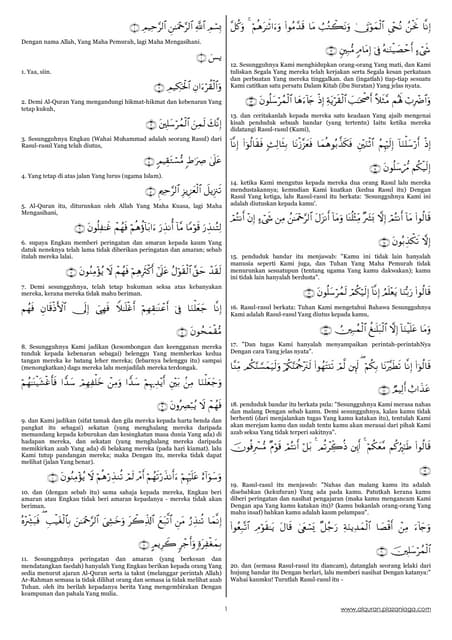 بِسْمِ اللَّهِ الرَّحْمَٰنِ الرَّحِيمِ
Dengan nama Allah, Yang Maha Pemurah, lagi Maha Mengasihani.
يسٓ
1. Yaa, siin.
وَالْقُرْءَانِ الْحَكِيمِ
2. Demi Al-Quran Yang mengandungi hikmat-hikmat dan kebenaran Yang
tetap kukuh,
إِنَّكَ لَمِنَ الْمُرْسَلِينَ
3. Sesungguhnya Engkau (Wahai Muhammad adalah seorang Rasul) dari
Rasul-rasul Yang telah diutus,
عَلَىٰ صِرَٰطٍ مُّسْتَقِيمٍ
4. Yang tetap di atas jalan Yang lurus (ugama Islam).
تَنزِيلَ الْعَزِيزِ الرَّحِيمِ
5. Al-Quran itu, diturunkan oleh Allah Yang Maha Kuasa, lagi Maha
Mengasihani,
لِتُنذِرَ قَوْمًا مَّا أُنذِرَ ءَابَاؤُهُمْ فَهُمْ غَٰفِلُونَ
6. supaya Engkau memberi peringatan dan amaran kepada kaum Yang
datuk neneknya telah lama tidak diberikan peringatan dan amaran; sebab
itulah mereka lalai.
لَقَدْ حَقَّ الْقَوْلُ عَلَىٰ أَكْثَرِهِمْ فَهُمْ لَا يُؤْمِنُونَ
7. Demi sesungguhnya, telah tetap hukuman seksa atas kebanyakan
mereka, kerana mereka tidak mahu beriman.
إِنَّا جَعَلْنَا فِي أَعْنَٰقِهِمْ أَغْلَٰلًا فَهِيَ إِلَى الْأَذْقَانِ فَهُم
مُّقْمَحُونَ
8. Sesungguhnya Kami jadikan (kesombongan dan keengganan mereka
tunduk kepada kebenaran sebagai) belenggu Yang memberkas kedua
tangan mereka ke batang leher mereka; (lebarnya belenggu itu) sampai
(menongkatkan) dagu mereka lalu menjadilah mereka terdongak.
وَجَعَلْنَا مِنۢ بَيْنِ أَيْدِيهِمْ سَدًّا وَمِنْ خَلْفِهِمْ سَدًّا فَأَغْشَيْنَٰهُمْ
فَهُمْ لَا يُبْصِرُونَ
9. dan Kami jadikan (sifat tamak dan gila mereka kepada harta benda dan
pangkat itu sebagai) sekatan (yang menghalang mereka daripada
memandang kepada keburukan dan kesingkatan masa dunia Yang ada) di
hadapan mereka, dan sekatan (yang menghalang mereka daripada
memikirkan azab Yang ada) di belakang mereka (pada hari kiamat). lalu
Kami tutup pandangan mereka; maka Dengan itu, mereka tidak dapat
melihat (jalan Yang benar).
وَسَوَاءٌ عَلَيْهِمْ ءَأَنذَرْتَهُمْ أَمْ لَمْ تُنذِرْهُمْ لَا يُؤْمِنُونَ
10. dan (dengan sebab itu) sama sahaja kepada mereka, Engkau beri
amaran atau Engkau tidak beri amaran kepadanya - mereka tidak akan
beriman.
إِنَّمَا تُنذِرُ مَنِ اتَّبَعَ الذِّكْرَ وَخَشِيَ الرَّحْمَٰنَ بِالْغَيْبِ ۖ فَبَشِّرْهُ
بِمَغْفِرَةٍ وَأَجْرٍ كَرِيمٍ
11. Sesungguhnya peringatan dan amaran (yang berkesan dan
mendatangkan faedah) hanyalah Yang Engkau berikan kepada orang Yang
sedia menurut ajaran Al-Quran serta ia takut (melanggar perintah Allah)
Ar-Rahman semasa ia tidak dilihat orang dan semasa ia tidak melihat azab
Tuhan. oleh itu berilah kepadanya berita Yang mengembirakan Dengan
keampunan dan pahala Yang mulia.
إِنَّا نَحْنُ نُحْيِ الْمَوْتَىٰ وَنَكْتُبُ مَا قَدَّمُوا وَءَاثَٰرَهُمْ ۚ وَكُلَّ
شَيْءٍ أَحْصَيْنَٰهُ فِي إِمَامٍ مُّبِينٍ
12. Sesungguhnya Kami menghidupkan orang-orang Yang mati, dan Kami
tuliskan Segala Yang mereka telah kerjakan serta Segala kesan perkataan
dan perbuatan Yang mereka tinggalkan. dan (ingatlah) tiap-tiap sesuatu
Kami catitkan satu persatu Dalam Kitab (ibu Suratan) Yang jelas nyata.
وَاضْرِبْ لَهُم مَّثَلًا أَصْحَٰبَ الْقَرْيَةِ إِذْ جَاءَهَا الْمُرْسَلُونَ
13. dan ceritakanlah kepada mereka satu keadaan Yang ajaib mengenai
kisah penduduk sebuah bandar (yang tertentu) Iaitu ketika mereka
didatangi Rasul-rasul (Kami),
إِذْ أَرْسَلْنَا إِلَيْهِمُ اثْنَيْنِ فَكَذَّبُوهُمَا فَعَزَّزْنَا بِثَالِثٍ فَقَالُوا إِنَّا
إِلَيْكُم مُّرْسَلُونَ
14. ketika Kami mengutus kepada mereka dua orang Rasul lalu mereka
mendustakannya; kemudian Kami kuatkan (kedua Rasul itu) Dengan
Rasul Yang ketiga, lalu Rasul-rasul itu berkata: `Sesungguhnya Kami ini
adalah diutuskan kepada kamu'.
قَالُوا مَا أَنتُمْ إِلَّا بَشَرٌ مِّثْلُنَا وَمَا أَنزَلَ الرَّحْمَٰنُ مِن شَيْءٍ إِنْ أَنتُمْ
إِلَّا تَكْذِبُونَ
15. penduduk bandar itu menjawab: "Kamu ini tidak lain hanyalah
manusia seperti Kami juga, dan Tuhan Yang Maha Pemurah tidak
menurunkan sesuatupun (tentang ugama Yang kamu dakwakan); kamu
ini tidak lain hanyalah berdusta".
قَالُوا رَبُّنَا يَعْلَمُ إِنَّا إِلَيْكُمْ لَمُرْسَلُونَ
16. Rasul-rasul berkata: Tuhan Kami mengetahui Bahawa Sesungguhnya
Kami adalah Rasul-rasul Yang diutus kepada kamu,
وَمَا عَلَيْنَا إِلَّا الْبَلَٰغُ الْمُبِينُ
17. "Dan tugas Kami hanyalah menyampaikan perintah-perintahNya
Dengan cara Yang jelas nyata".
قَالُوا إِنَّا تَطَيَّرْنَا بِكُمْ ۖ لَئِن لَّمْ تَنتَهُوا لَنَرْجُمَنَّكُمْ وَلَيَمَسَّنَّكُم مِّنَّا
عَذَابٌ أَلِيمٌ
18. penduduk bandar itu berkata pula: "Sesungguhnya Kami merasa nahas
dan malang Dengan sebab kamu. Demi sesungguhnya, kalau kamu tidak
berhenti (dari menjalankan tugas Yang kamu katakan itu), tentulah Kami
akan merejam kamu dan sudah tentu kamu akan merasai dari pihak Kami
azab seksa Yang tidak terperi sakitnya".
قَالُوا طَٰئِرُكُم مَّعَكُمْ ۚ أَئِن ذُكِّرْتُم ۚ بَلْ أَنتُمْ قَوْمٌ مُّسْرِفُونَ
19. Rasul-rasul itu menjawab: "Nahas dan malang kamu itu adalah
disebabkan (kekufuran) Yang ada pada kamu. Patutkah kerana kamu
diberi peringatan dan nasihat pengajaran (maka kamu mengancam Kami
Dengan apa Yang kamu katakan itu)? (kamu bukanlah orang-orang Yang
mahu insaf) bahkan kamu adalah kaum pelampau".
وَجَاءَ مِنْ أَقْصَا الْمَدِينَةِ رَجُلٌ يَسْعَىٰ قَالَ يَٰقَوْمِ اتَّبِعُوا
الْمُرْسَلِينَ
20. dan (semasa Rasul-rasul itu diancam), datanglah seorang lelaki dari
hujung bandar itu Dengan berlari, lalu memberi nasihat Dengan katanya:"
Wahai kaumku! Turutlah Rasul-rasul itu -
1
www.alquran.plazaniaga.com